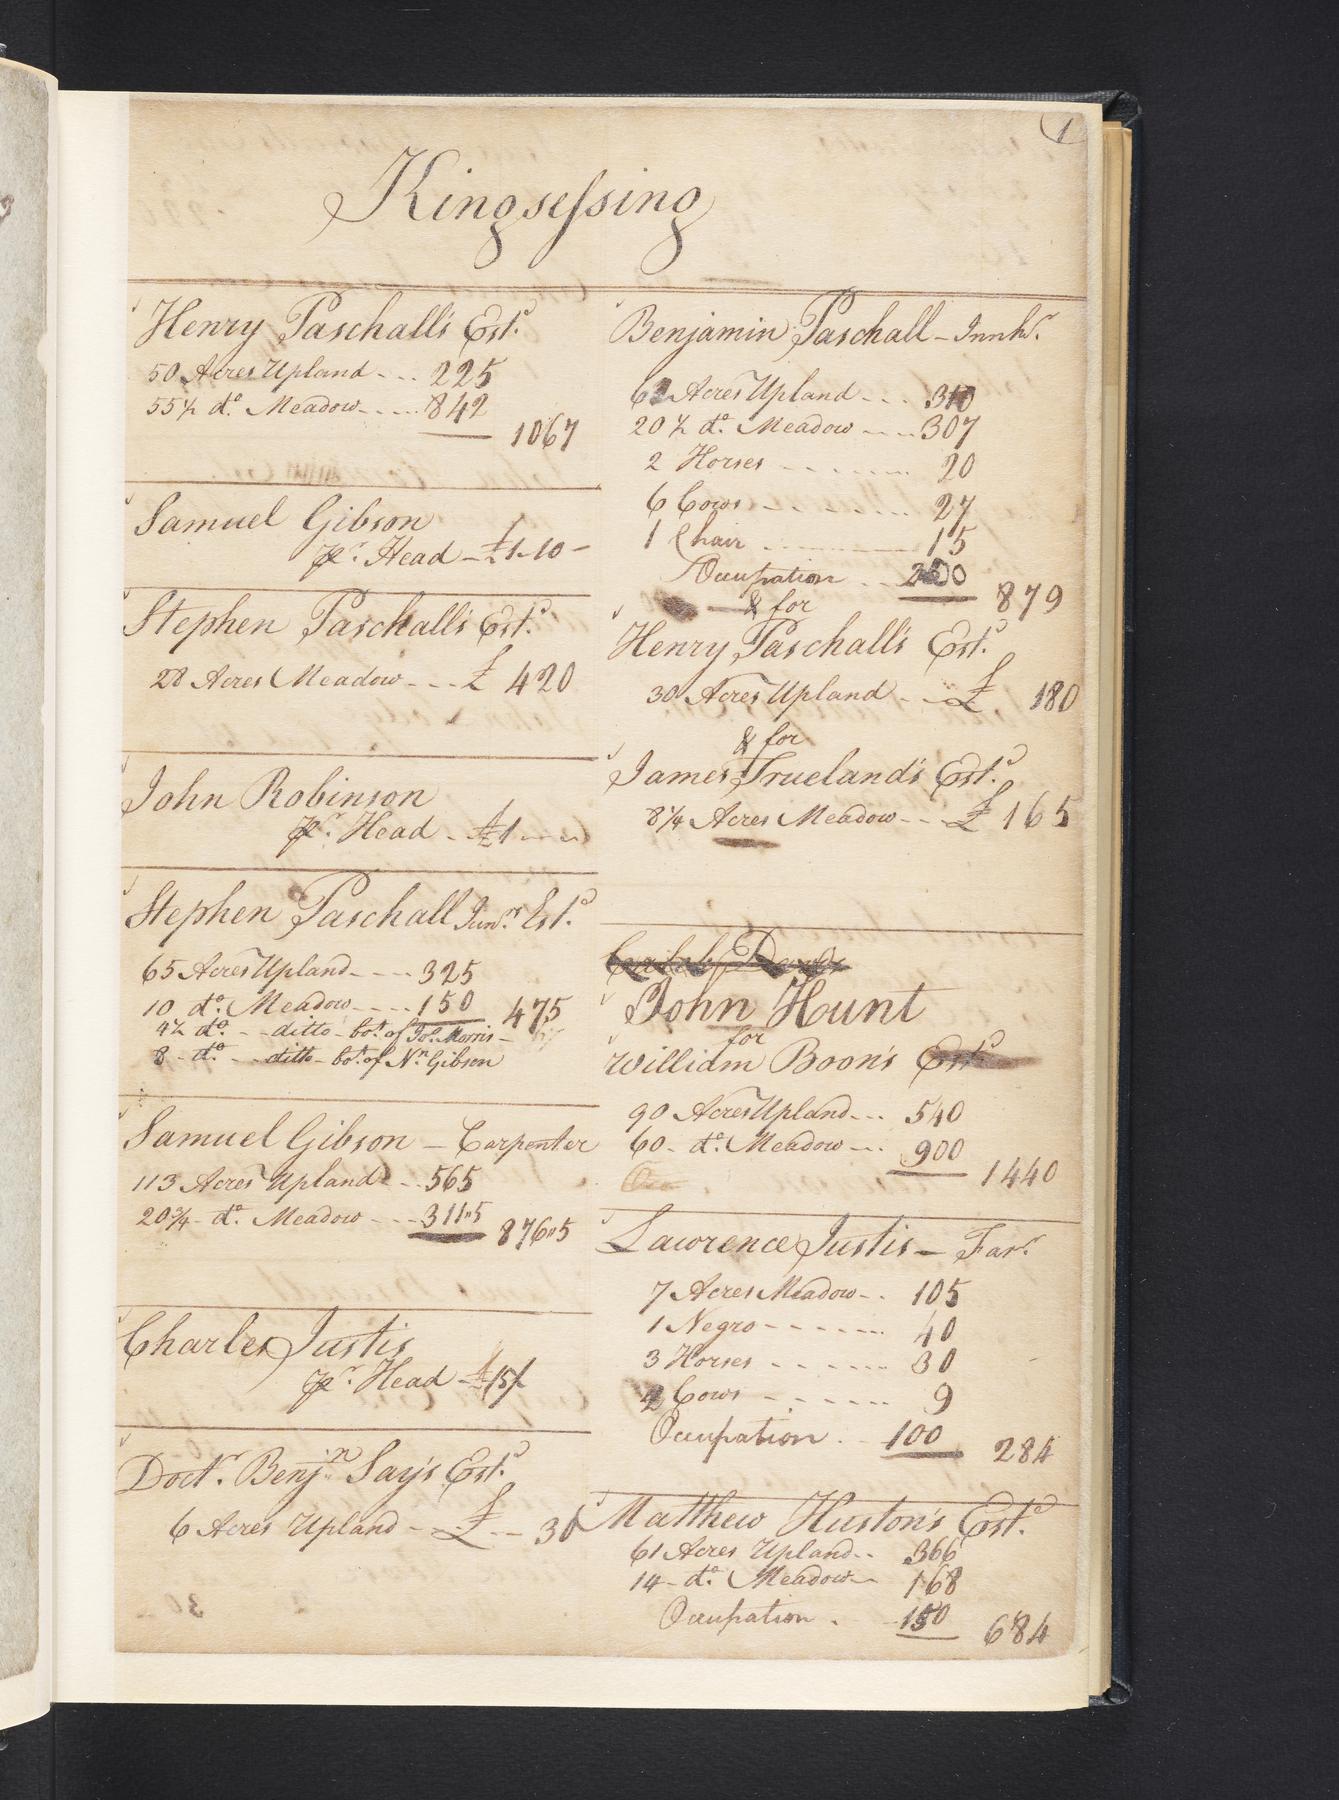 1
Kingsessing
Henry Paschall's Estd
50 Acres Upland - - - 225
55½ do. Meadow - - - - 842
1067
Samuel Gibson
pr. Head - £1-10-
Stephen Paschall's Estd
28 Acres Meadow - - - £ 420
John Robinson
pr. Head - £1 - - -
Stephen Paschall Junr. Estd
65 Acres Upland - - - - 325
10 do. Meadow - - - - 150 475
4½ do. - - ditto - bot. of Jos. Morris -
8 - do. - - ditto - bot. of Nn. Gibson
Samuel Gibson - Carpenter
113 Acres Upland - - 565
20¾ - do. Meadow - - - 311"5 876"5
Charles Justis
pr. Head - £ 15/
Doctr. Benjn. Say's Estd
6 Acres Upland - - £ - - 30
Benjamin Paschall - Innkr.
62 Acres Upland - - - 310
20½ do. Meadow - - - 307
2 Horses - - - - - - - 20
6 Cows - - - - - - - - 27
1 Chair - - - - - - - 15
Occupation - - 200
879
& for
Henry Paschall's Estd
30 Acres Upland - - £ 180
& for
James Trueland's Estd
8¼ Acres Meadow - - - £ 165
John Hunt
for
William Boon's Estd
90 Acres Upland - - - 540
60 - do. Meadow - - - 900
1440
Lawrence Justis - Farr.
7 Acres Meadow - - 105
1 Negro - - - - - - - 40
3 Horses - - - - - - - 30
2 Cows - - - - - - - 9
Occupation - 100 284
Matthew Huston's Estd
61 Acres Upland - - 366
14 - do. Meadow - - 168
Occupation - - 150 684